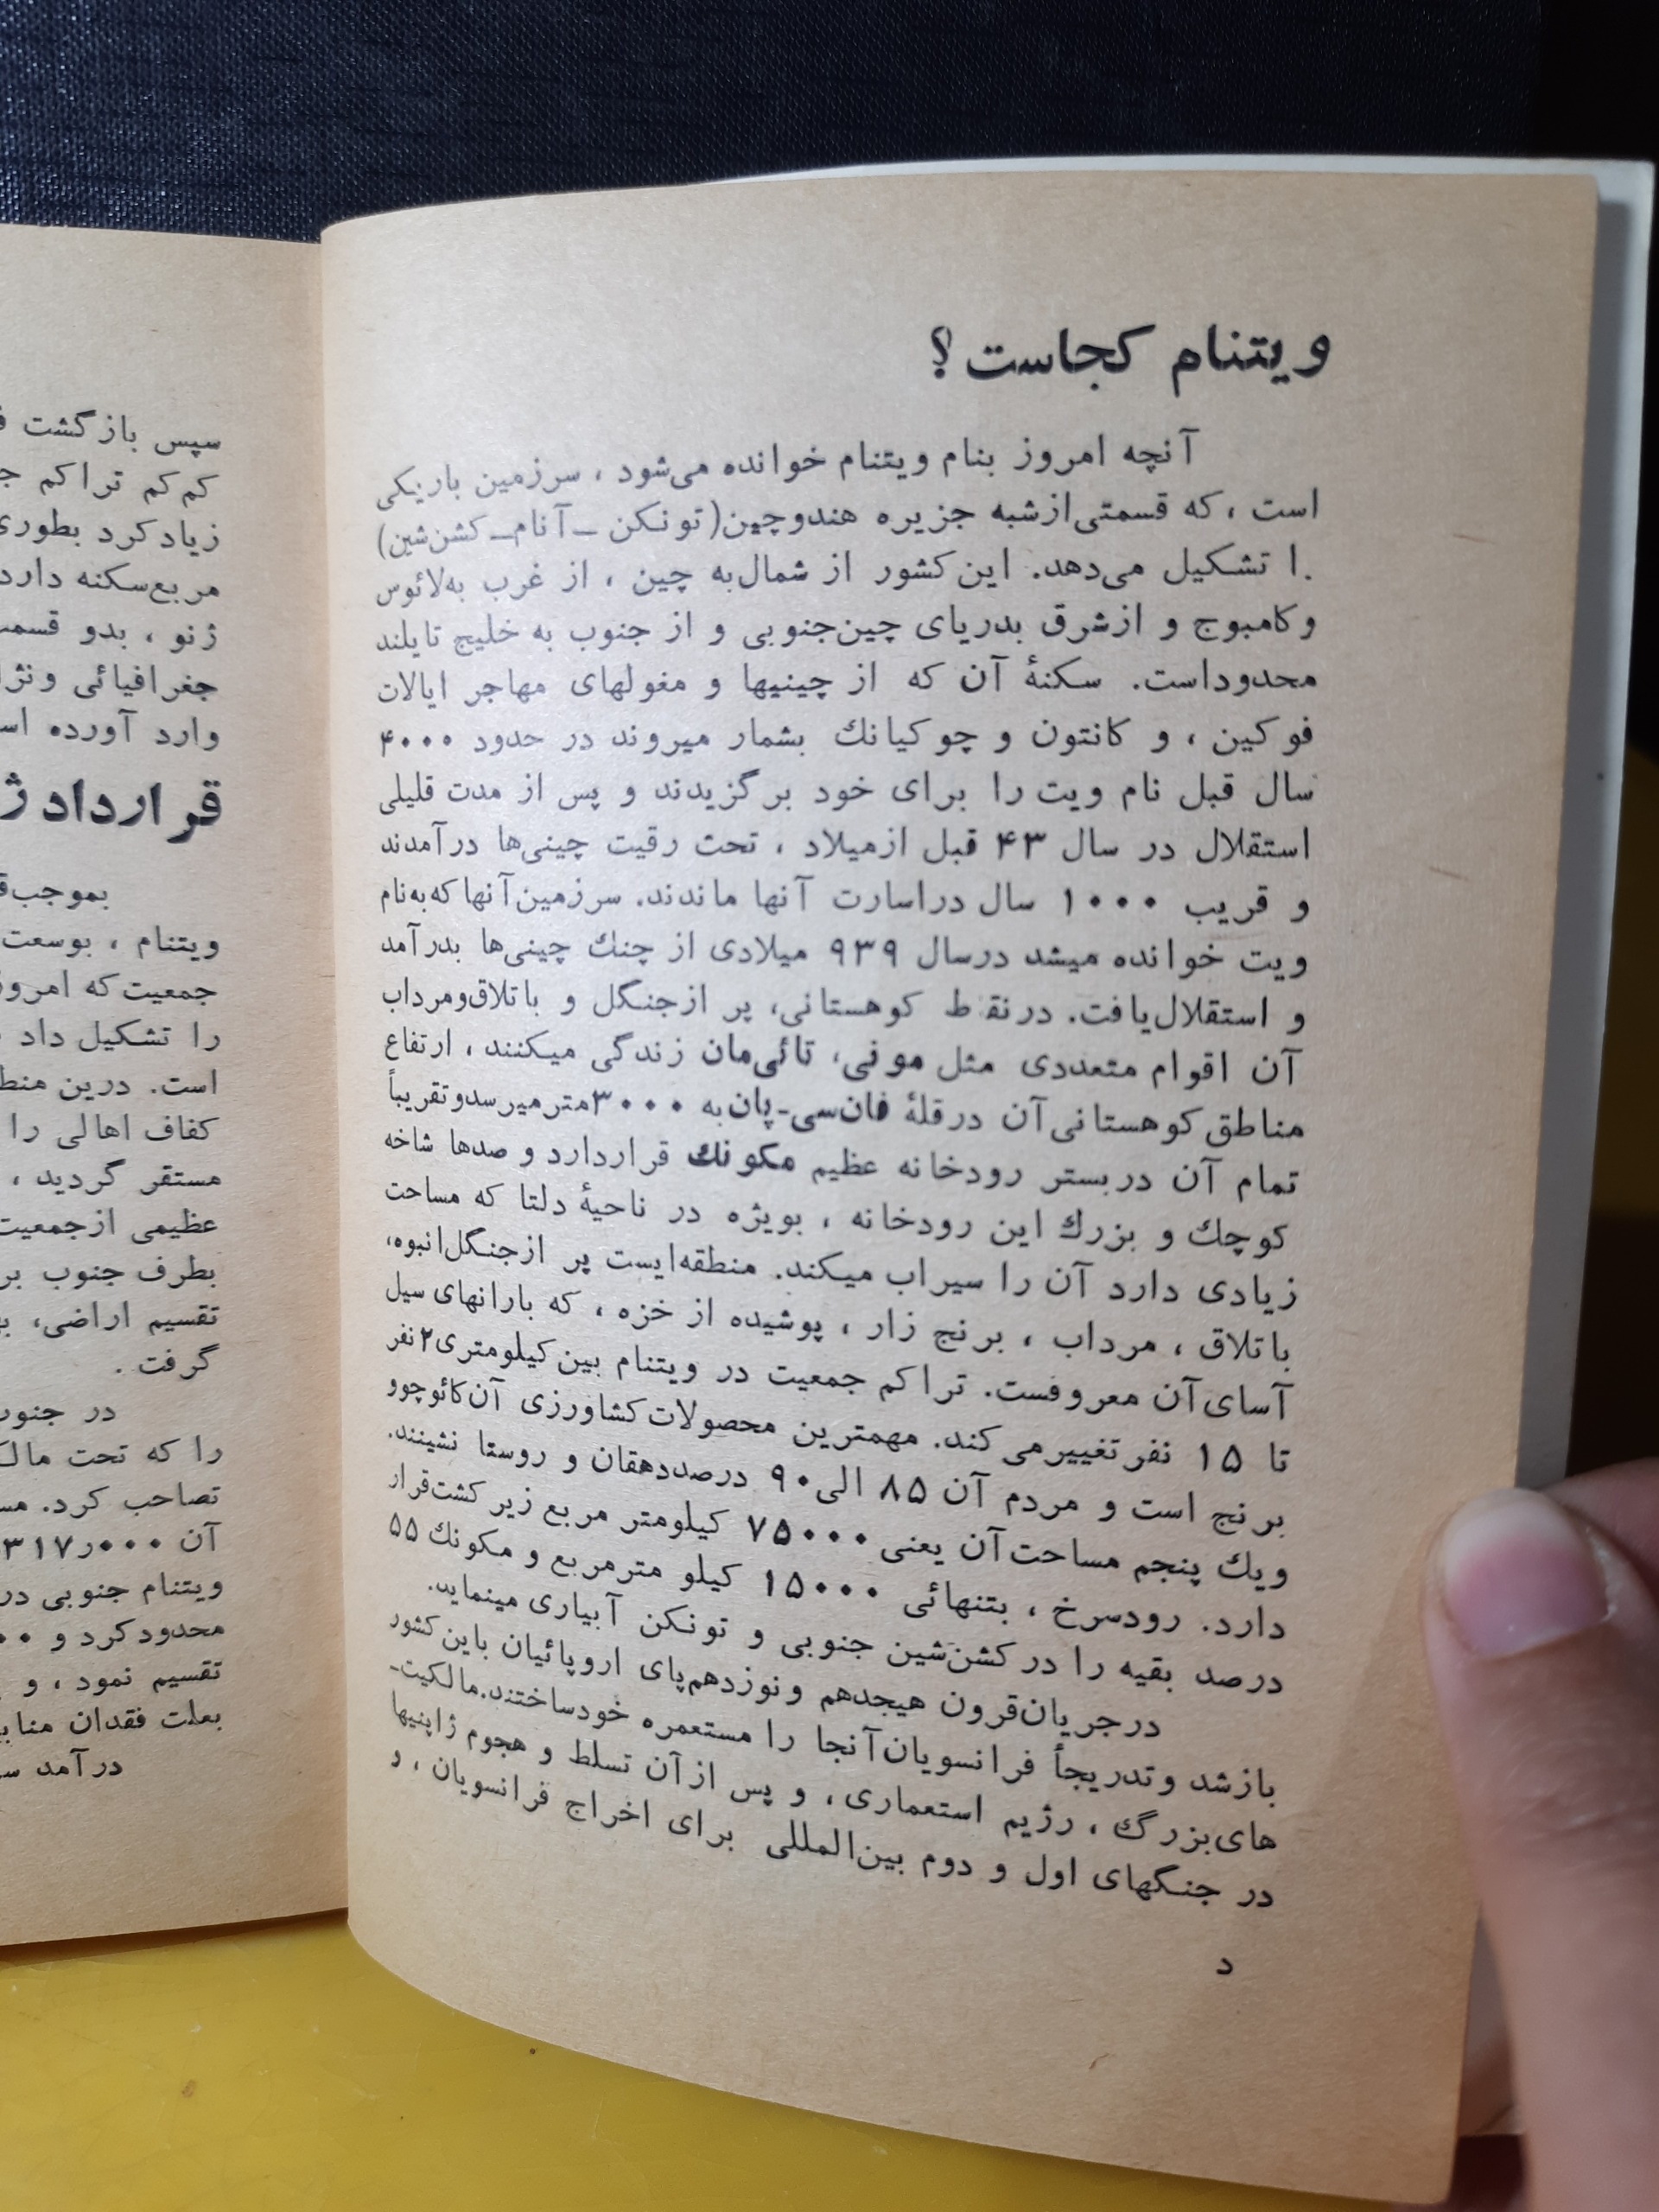 ویتنام کجاست ؟
آنچه امروز بنام ویتنام خوانده می‌شود ، سرزمین باریکی
است ، که قسمتی‌ازشبه جزیره هندوچین(تونکن ـ آنام ـ کشن‌شین)
.ا تشکیل می‌دهد. این‌کشور از شمال‌به چین ، از غرب به‌لائوس
وکامبوج و ازشرق بدریای چین‌جنوبی و از جنوب به خلیج تایلند
محدوداست. سکنهٔ آن که از چینیها و مغولهای مهاجر ایالات
فوکین ، و کانتون و چوکیانك بشمار میروند در حدود ۴۰۰۰
سال قبل نام ویت را برای خود برگزیدند و پس از مدت قلیلی
استقلال در سال ۴۳ قبل ازمیلاد ، تحت رقیت چینی‌ها درآمدند
و قریب ۱۰۰۰ سال دراسارت آنها ماندند. سرزمین‌آنهاکه‌به‌نام
ویت خوانده میشد درسال ۹۳۹ میلادی از چنك چینی‌ها بدرآمد
و استقلال‌یافت. درنقاط کوهستانی، پر ازجنگل و باتلاق‌ومرداب
آن اقوام متعددی مثل موئی، تائی‌مان زندگی میکنند ، ارتفاع
مناطق کوهستانی‌آن درقلهٔ فان‌سی-پان‌به ۳۰۰۰مترمیرسدوتقریباً
تمام آن دربستر رودخانه عظیم مکونك قراردارد و صدها شاخه
کوچك و بزرك این رودخانه ، بویژه در ناحیهٔ دلتا که مساحت
زیادی دارد آن را سیراب میکند. منطقه‌ایست پر ازجنگل‌انبوه،
باتلاق ، مرداب ، برنج زار ، پوشیده از خزه ، که بارانهای سیل
آسای‌آن معروفست. تراکم جمعیت در ویتنام بین‌کیلومتری۲نفر
تا ۱۵ نفرتغییرمی کند. مهمترین محصولات‌کشاورزی آن‌کائوچوو
برنج است و مردم آن ۸۵ الی۹۰ درصددهقان و روستا نشینند.
ویك پنجم مساحت‌آن یعنی ۷۵۰۰۰ کیلومتر مربع زیرکشت‌قرار
دارد. رودسرخ ، بتنهائی ۱۵۰۰۰ کیلو مترمربع و مکونك ۵۵
درصد بقیه را درکشن‌شین جنوبی و تونکن آبیاری مینماید.
درجریان‌قرون هیجدهم ونوزدهم‌پای اروپائیان باین‌کشور
بازشد وتدریجاً فرانسویان‌آنجا را مستعمره خودساختند.مالکیت-
های‌بزرگ ، رژیم استعماری ، و پس ازآن تسلط و هجوم ژاپنیها
در جنگهای اول و دوم بین‌المللی برای اخراج فرانسویان ، و
د
سپس بازگشت
کم‌کم تراکم
زیادکرد بطوری
مربع‌سکنه دارد
ژنو ، بدو
جغرافیائی ونژا
وارد آورده
قرارداد
ویتنام ، بوسعت
جمعیت‌که امروز
را تشکیل داد
است. درین
کفاف اهالی را
مستقر گردید ،
عظیمی ازجمعیت
بطرف جنوب
تقسیم اراضی،
گرفت .
در
را که تحت
تصاحب کرد.
آن ۳۱۷ر۰۰۰
ویتنام جنوبی در
محدودکرد و
تقسیم نمود ، و
بعلت فقدان
درآمد